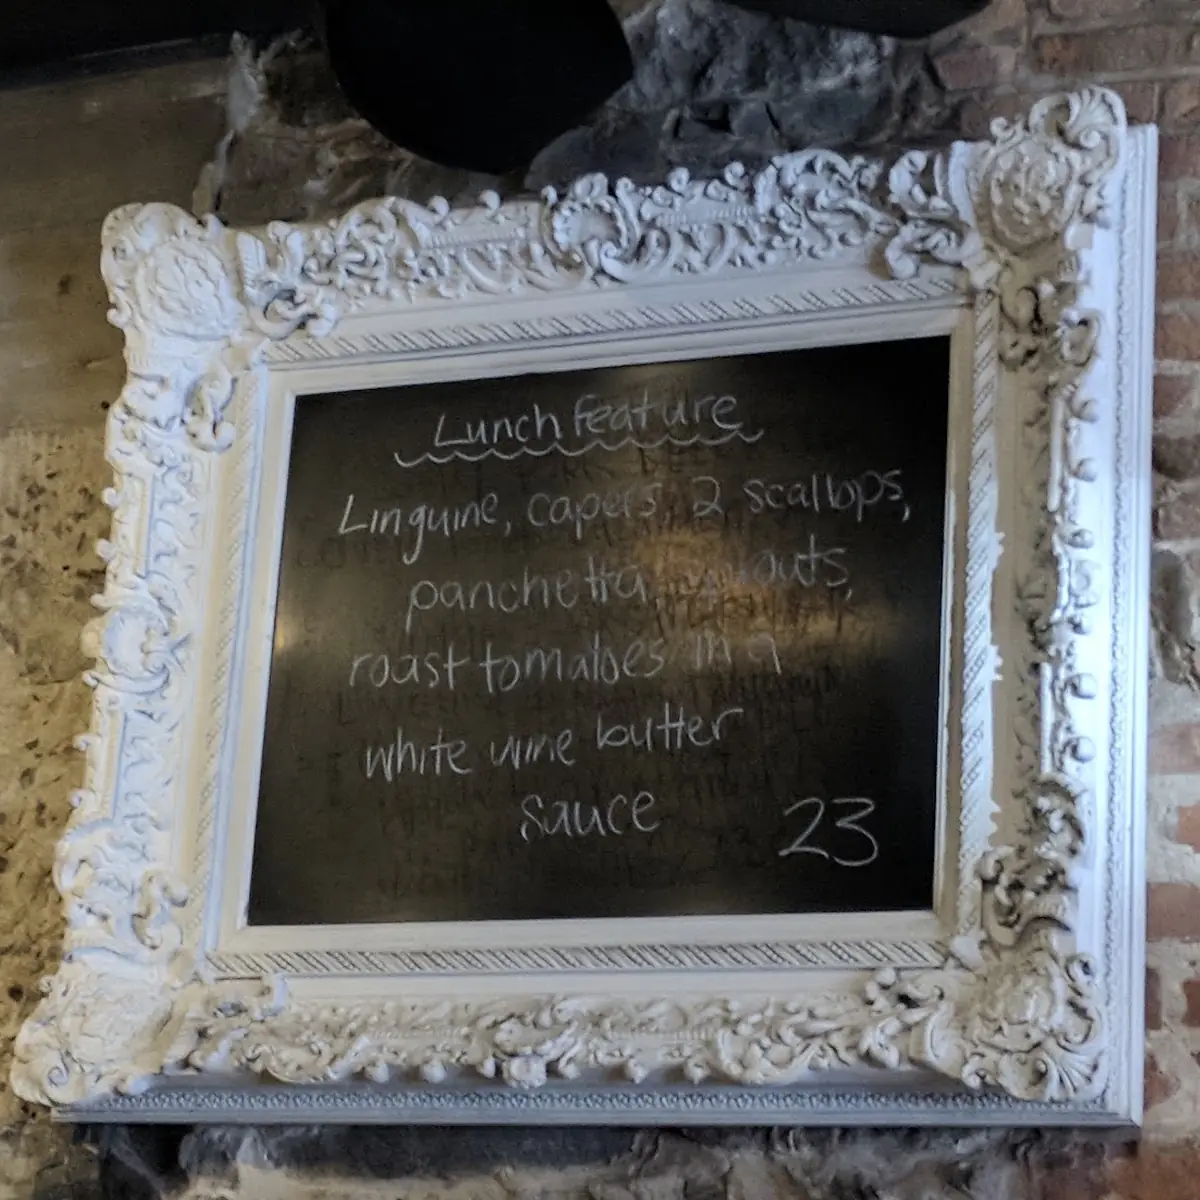 Lunch feature
Linguine, capers, 2 scallops,
panchetta, sprouts,
roast tomatoes in a
white wine butter
sauce 23